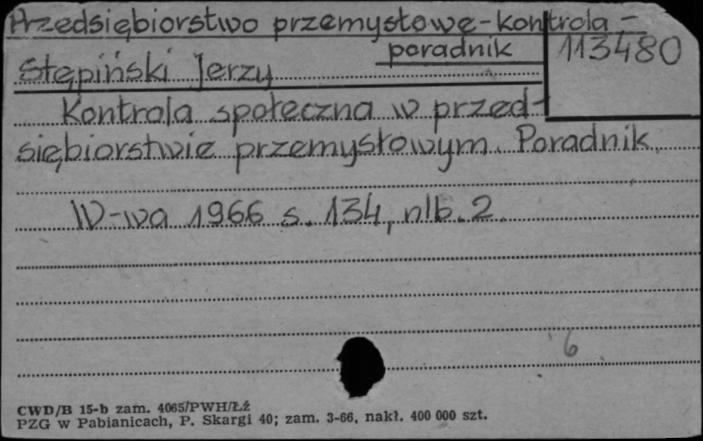 Przedsiębiorstwo przemysłowe - kontrola -
poradnik
113480
Stępiński Jerzy
Kontrola społeczna w przed-
siębiorstwie przemysłowym. Poradnik.
W-wa 1966 s. 134, nlb. 2.
6
CWD/B 15-b zam. 4065/PWH/Łż
PZG w Pabianicach, P. Skargi 40; zam. 3-66, nakł. 400 000 szt.